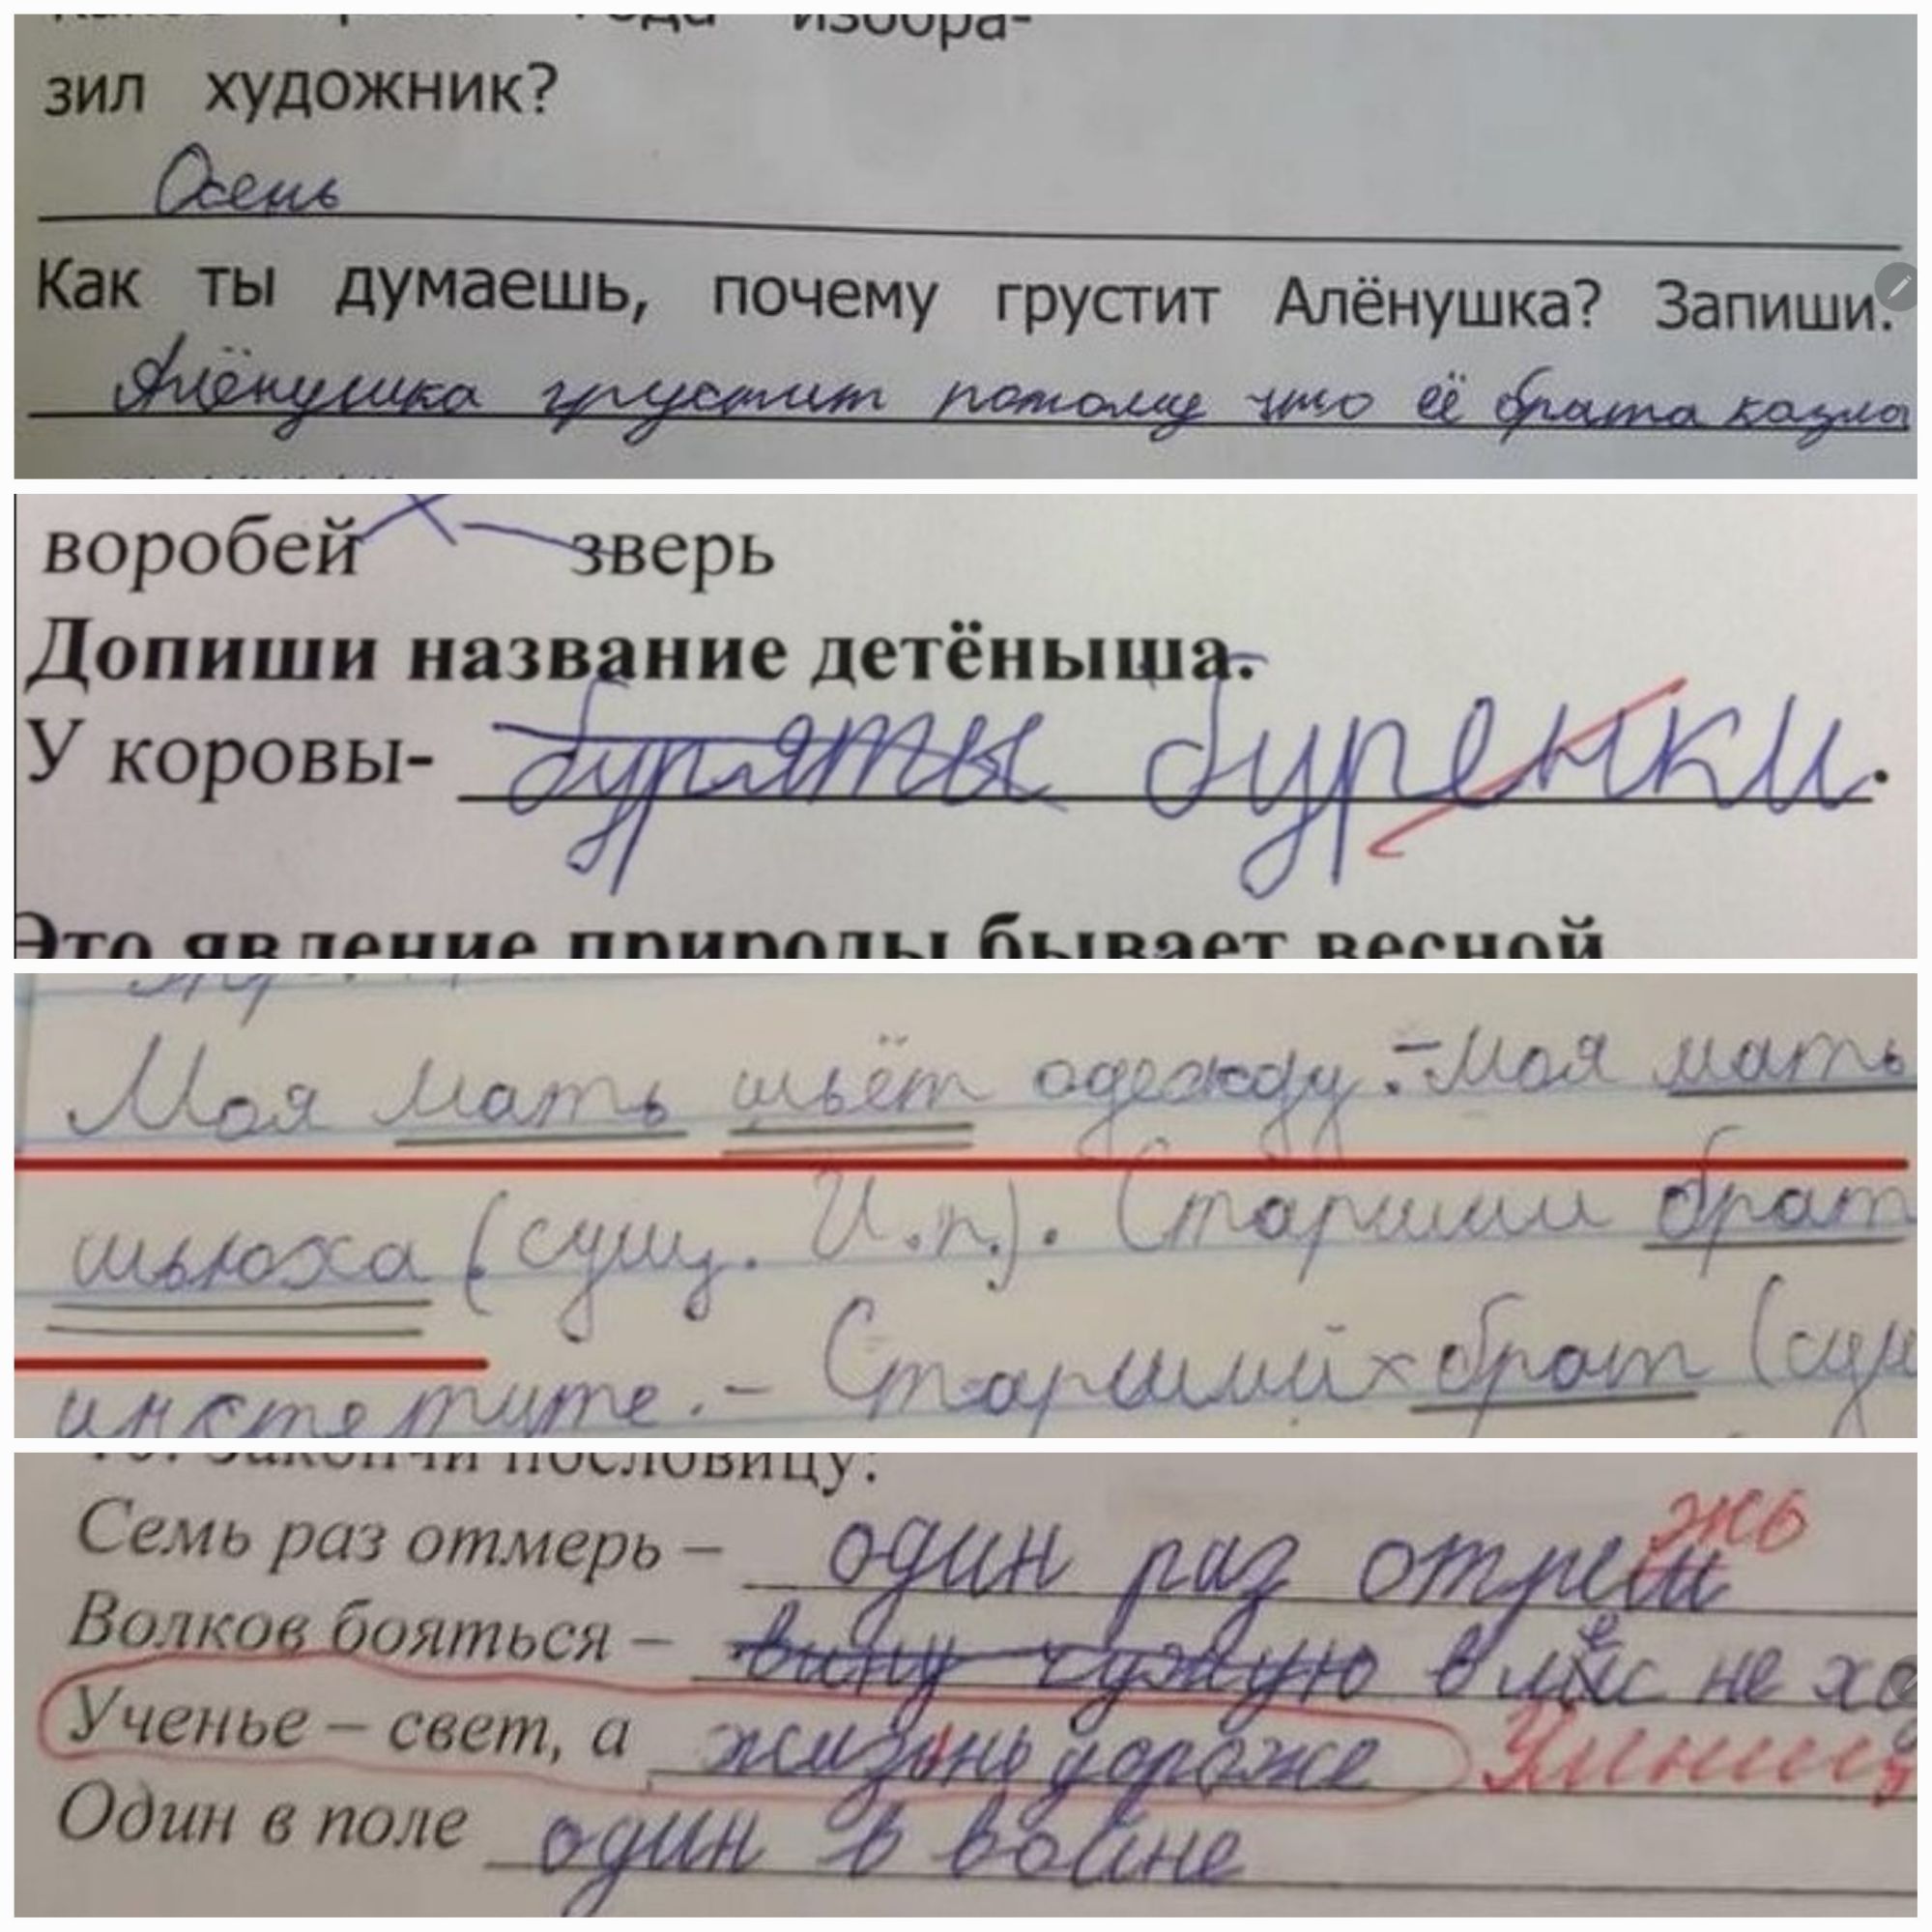 года изобра-
зил художник?
Осень
Как ты думаешь, почему грустит Алёнушка? Запиши.
Алёнушка грустит потому что её брата козла
воробей зверь
Допиши название детёныша.
У коровы- буряты буренки.
Это явление природы бывает весной
Моя мать шьёт одежду. - Моя мать
шьюха (сущ. И.п.). Старший брат
инстетуте. - Старший брат (сущ
Закончи пословицу:
жь
Семь раз отмерь – один раз отреш
Волков бояться – вину чужую в лес не хо
Ученье – свет, а жизнь дороже
Один в поле один в войне